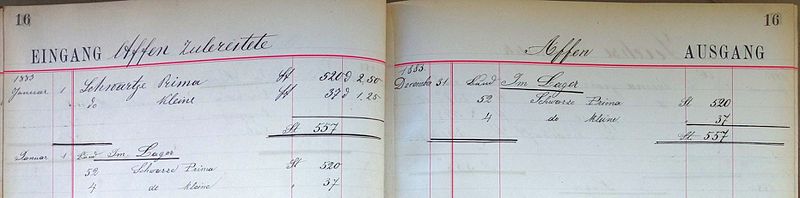 16
EINGANG Affen Zubereitete
1883
Januar 1 Schwartze Prima St 520 à 2.50
do kleine St 37 à 1.25
St 557
Januar 1 Laud Im Lager
52 Schwarze Prima St 520
4 do kleine " 37
16
Affen AUSGANG
1883
Decembr 31 Laud Im Lager
52 Schwarze Prima St 520
4 do kleine " 37
St. 557